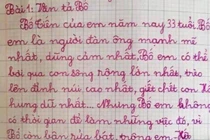 Bài 1: Văn tả Bố
Bố Tiến của em năm nay 33 tuổi. Bố
em là người đàn ông mạnh mẽ
nhất, dũng cảm nhất. Bố em có thể
bơi qua con sông rộng lớn nhất, trèo
lên đỉnh núi cao nhất, giết chết con hổ
hung dữ nhất... Nhưng Bố em không
có thời gian để làm những việc đó, vì
Bố còn bận rửa bát, trông em